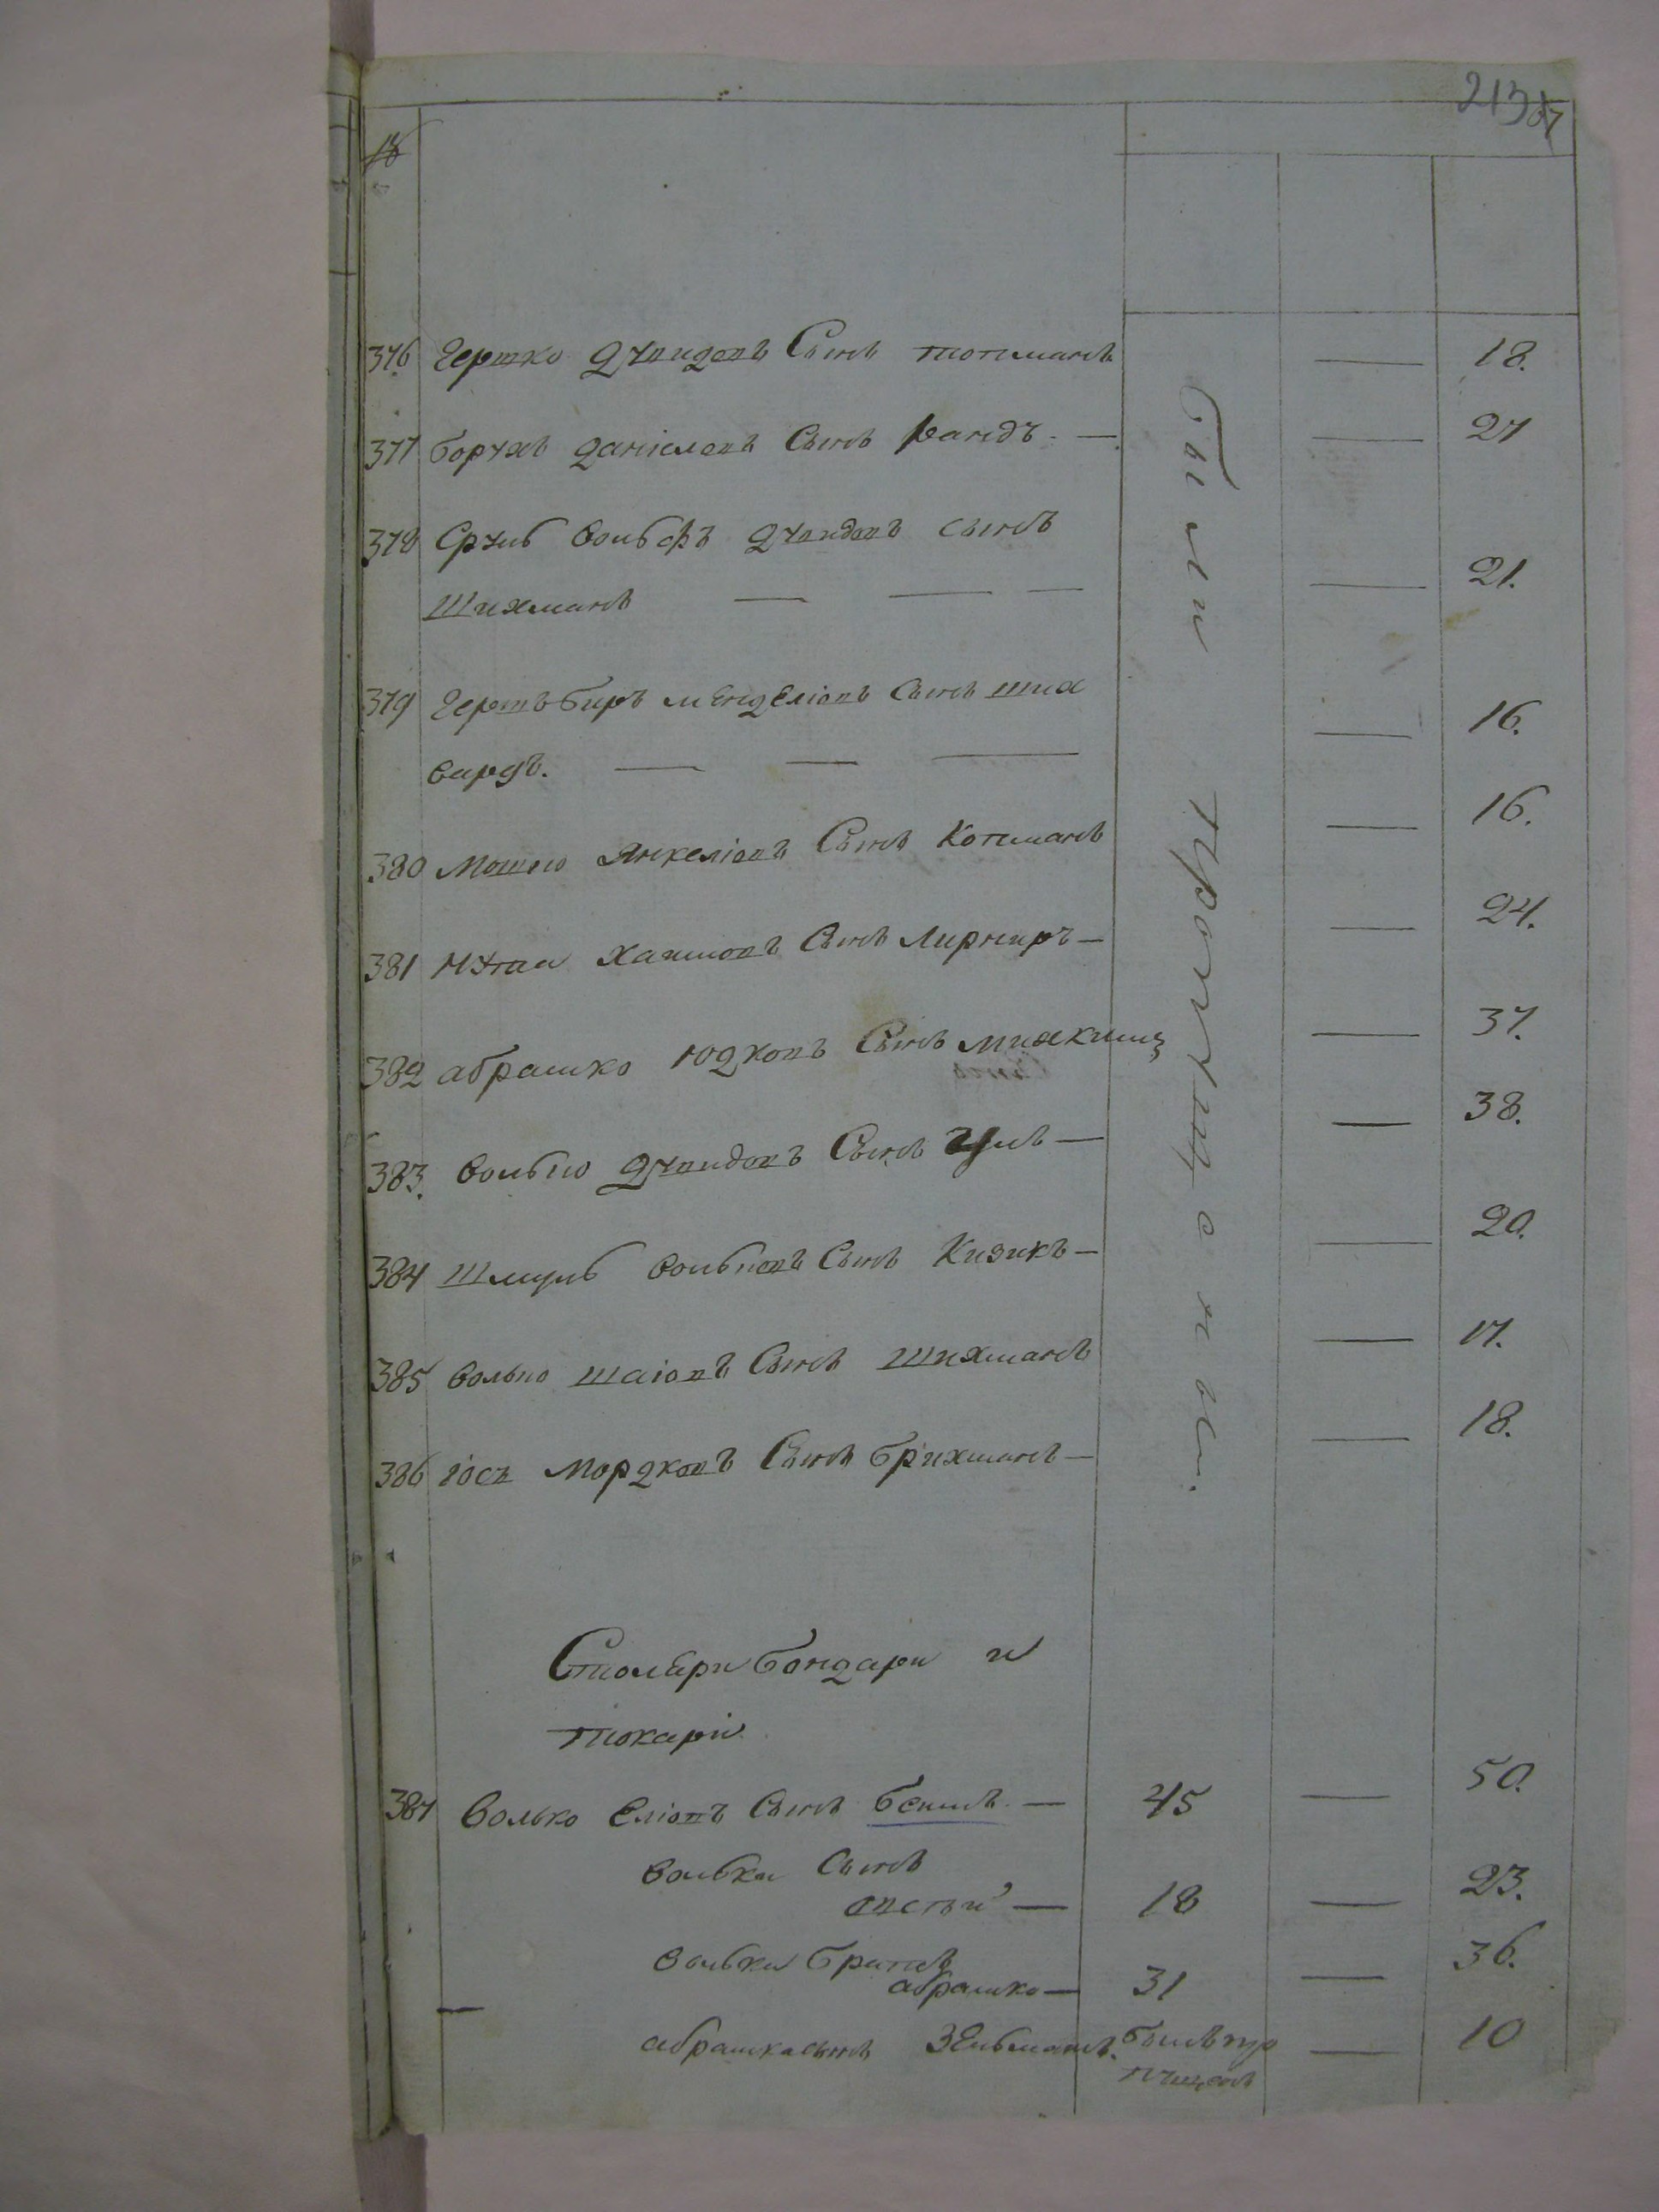 213
376 Гершко Дувидовъ Сынъ Тотманъ 18.
377 Борухъ Даніеловъ Сынъ 27
378 Срулъ Вольфъ Дувидовъ сынъ
Шихманъ 21.
379 Гершъ Биръ Менделіовъ Сынъ Ших
вардъ. 16.
380 Мошко Янкеліовъ Сынъ Котманъ 16.
381 Нута Хаимовъ Сынъ Лирниръ 24.
382 Абрашко Юдковъ Сынъ 37.
383. Вольпо Дувидовъ Сынъ 38.
384 Шмуль Вольповъ Сынъ Кизикъ 20.
385 Вольпо Шаіовъ Сынъ Шихманъ 17.
386 Іосъ Мордковъ Сынъ Брихманъ 18.
Были пропущены.
Столяри Бондари и
Токари
387 Волько Еліовъ Сынъ 45 50.
Волька Сынъ
18 23.
Волька Братъ
Абрашко 31 36.
Абрашка сынъ Зельманъ. Былъ про
пущенъ 10